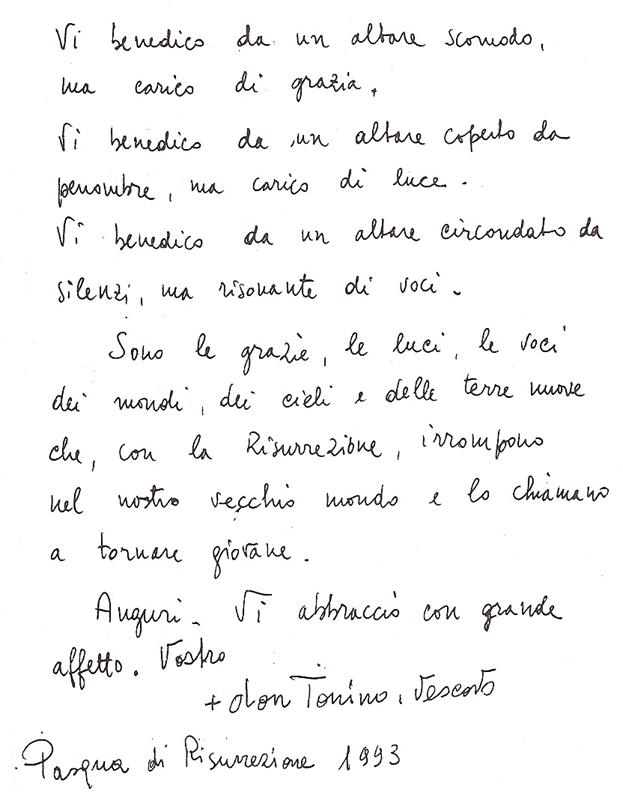 Vi benedico da un altare scomodo,
ma carico di grazia.
Vi benedico da un altare coperto da
penombre, ma carico di luce.
Vi benedico da un altare circondato da
silenzi, ma risonante di voci.
Sono le grazie, le luci, le voci
dei mondi, dei cieli e delle terre nuove
che, con la Risurrezione, irrompono
nel nostro vecchio mondo e lo chiamano
a tornare giovane.
Auguri. Vi abbraccio con grande
affetto. Vostro
+ don Tonino, Vescovo
Pasqua di Risurrezione 1993